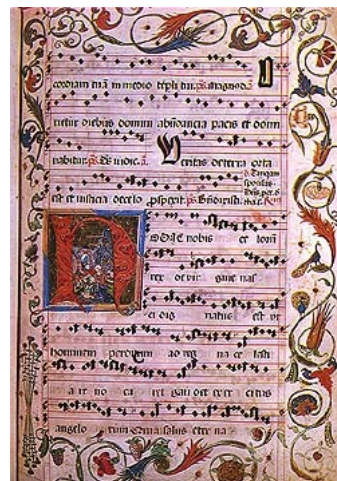 cordiam tuā in medio tēpli tui. ps. Magnus d. O
rietur diebus domini abūdancia pacis et dom
nabitur. ps. Deus iudic. a. V eritas de terra orta
est et iusticia de celo
H ODIE nobis ce lorū
rex de vir gine nas
ci dig natus est vt
hominem perditum ad reg na ce lesti
a re uo ca ret gau det exer citus
angelo rum Quia salus eter na